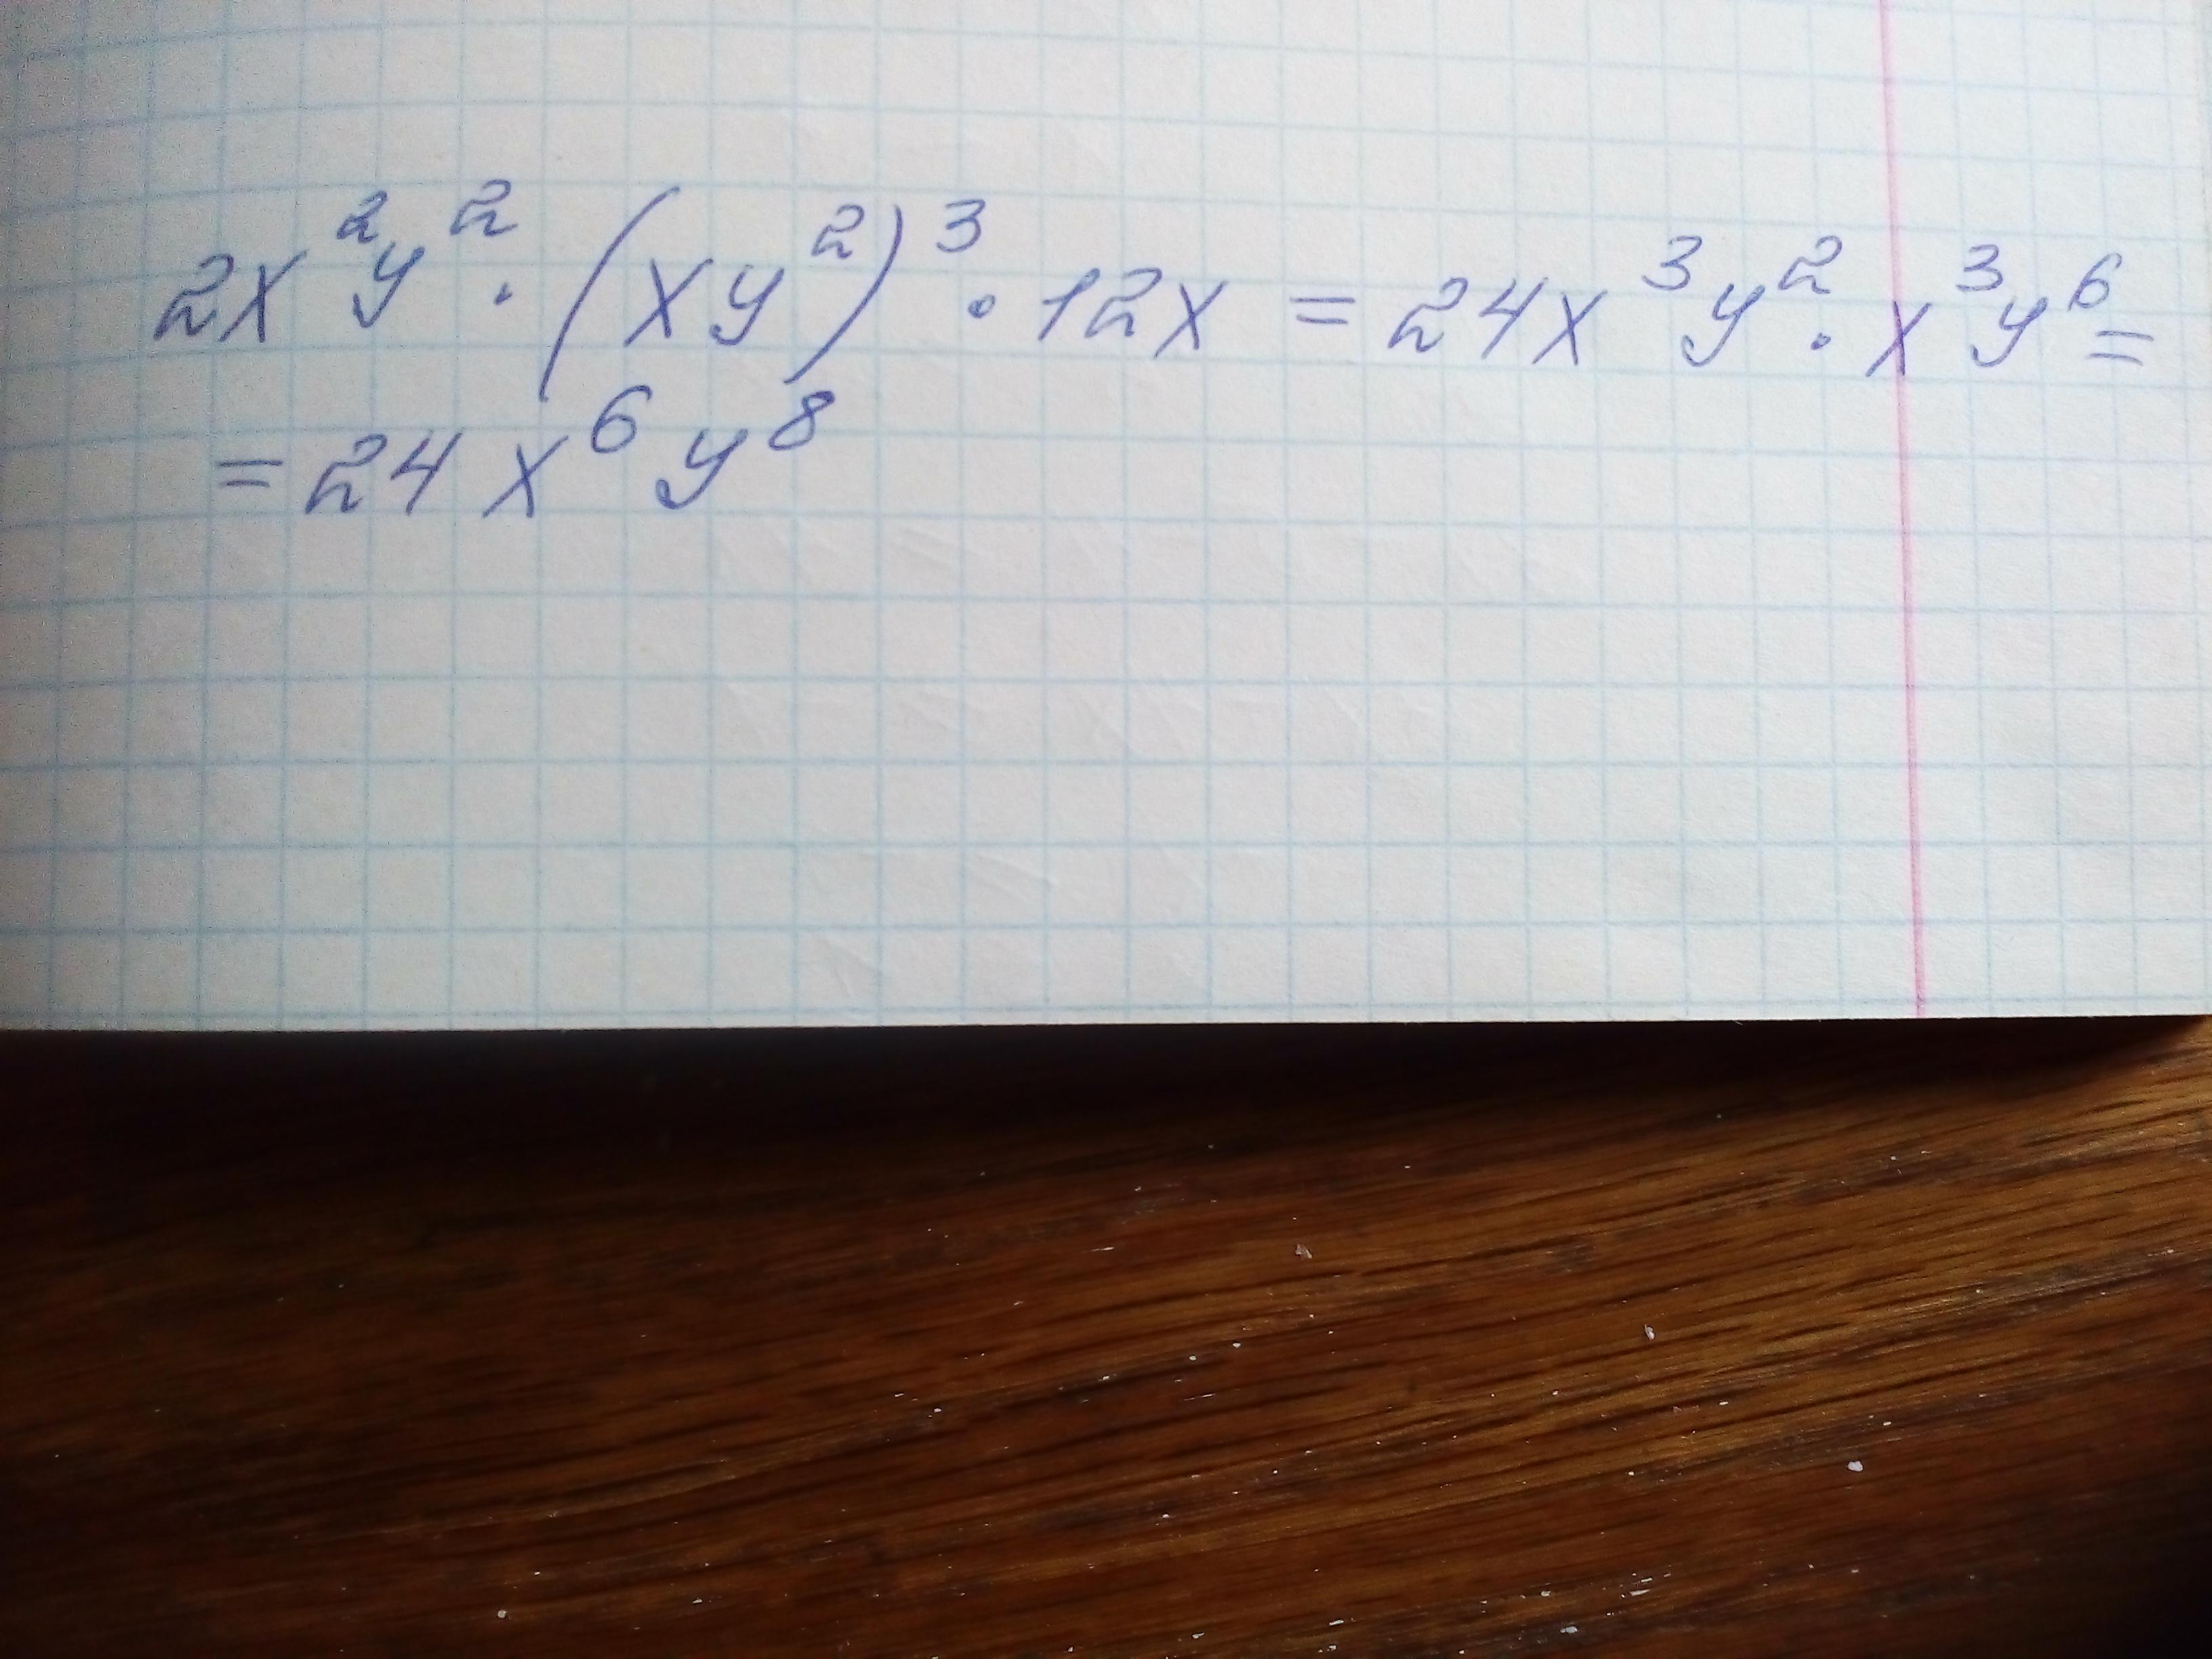 2x²y² · (xy²)³ · 12x = 24x³y² · x³y⁶ =
= 24x⁶y⁸